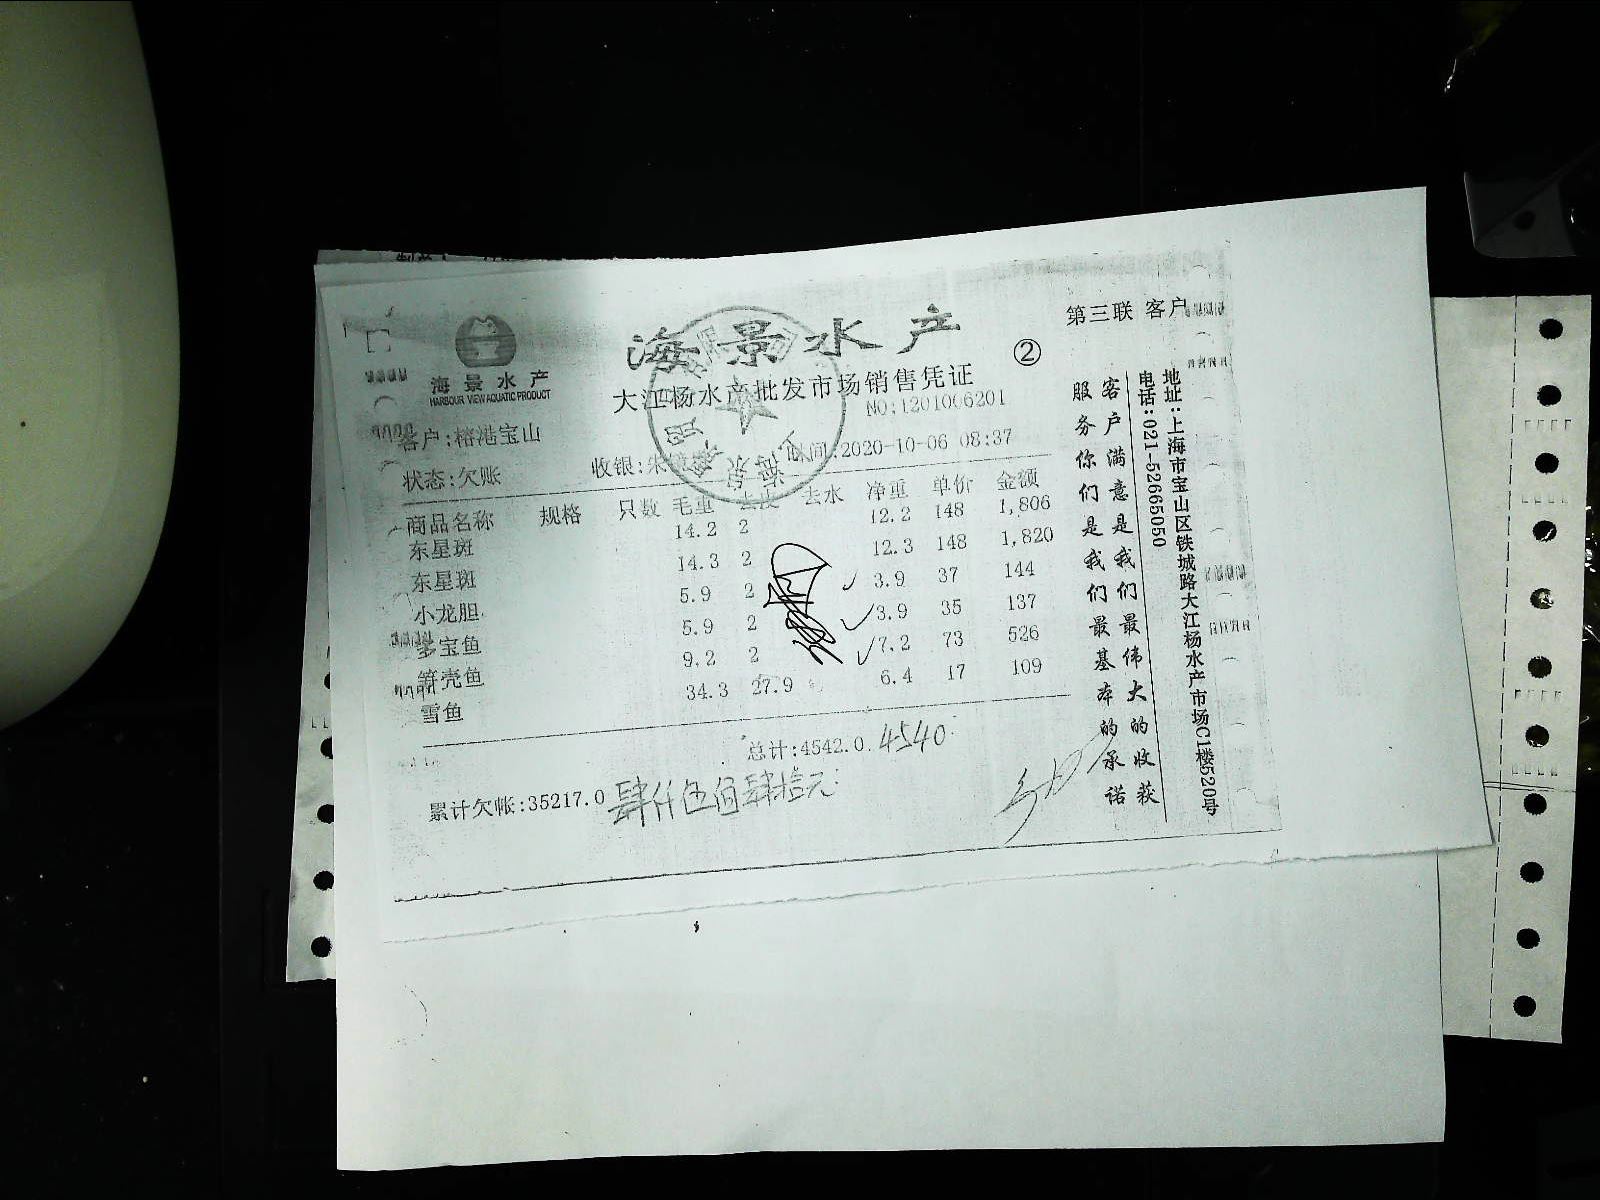 海景水产
HARBOUR VIEW AQUATIC PRODUCT
海景水产
第三联 客户
大江杨水产批发市场销售凭证
②
NO:1201006201
客户:榕港宝山
时间:2020-10-06 08:37
状态:欠账
收银:朱
商品名称 规格 只数 毛重 去皮 去水 净重 单价 金额
东星斑 14.2 2 12.2 148 1,806
东星斑 14.3 2 12.3 148 1,820
小龙胆 5.9 2 3.9 37 144
多宝鱼 5.9 2 3.9 35 137
笋壳鱼 9.2 2 7.2 73 526
雪鱼 34.3 27.9 6.4 17 109
总计:4542.0 4540
累计欠帐:35217.0 肆仟伍佰肆拾元
客户满意是我们最伟大的收获
服务你们是我们最基本的承诺
地址:上海市宝山区铁城路大江杨水产市场C1楼520号
电话:021-52665050